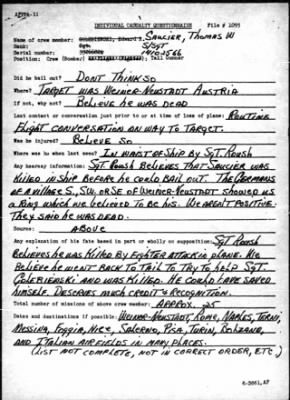 AFPPA-11
INDIVIDUAL CASUALTY QUESTIONNAIRE File # 1095
Name of crew member: Edward SAUCIER, THOMAS W
Rank: S/SGT
Serial number: 14102566
Position: Crew (Bomber) Tail Gunner
Did he bail out? DONT THINK SO
Where? TARGET WAS WEINER-NEUSTADT AUSTRIA
If not, why not? BELIEVE HE WAS DEAD
Last contact or conversation just prior to or at time of loss: ROUTINE
FLIGHT CONVERSATION ON WAY TO TARGET.
Was he injured? BELIEVE SO
Where was he when last seen? IN WAIST OF SHIP BY SGT ROUSH
Any hearsay information: SGT ROUSH BELIEVES THAT SAUCIER WAS
KILLED IN SHIP BEFORE HE COULD BAIL OUT. THE GERMANS
OF A VILLAGE S., SW. OR SE OF WEINER-NEUSTADT SHOWED US
A RING WHICH WE BELIEVED TO BE HIS. WE AREN'T POSITIVE.
THEY SAID HE WAS DEAD.
Source: ABOVE
Any explanation of his fate based in part or wholly on supposition: SGT ROUSH
BELIEVES HE WAS KILLED BY FIGHTER ATTACK IN PLANE. WE
BELIEVE HE WENT BACK TO TAIL TO TRY TO HELP SGT.
GOLEBIEWSKI AND WAS KILLED. HE COULD HAVE SAVED
HIMSELF. DESERVES MUCH CREDIT & RECOGNITION.
Total number of missions of above crew member: APPROX. 25
Dates and destinations if possible: WEINER-NEUSTADT, ROME, NAPLES, TERNI,
MESSINA, FOGGIA, NICE, SALERNO, PISA, TURIN, BOLZANO,
AND ITALIAN AIRFIELDS IN MANY PLACES.
(LIST NOT COMPLETE, NOT IN CORRECT ORDER, ETC.)
6-3861,AF